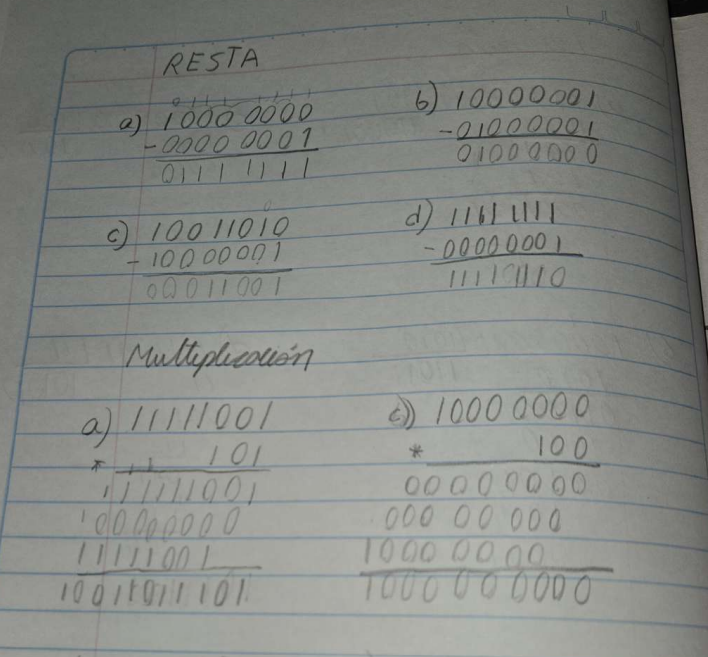 RESTA
0111 1111
a) 1000 0000
- 0000 0001
0111 1111
b) 10000001
- 01000001
01000000
0
c) 10011010
- 10000001
00011001
d) 1111 1111
- 00000001
11111110
Multiplicación
a) 11111001
* 101
11111001
00000000
11111001
10011011101
c) 1000 0000
* 100
0000 0000
000 00 000
1000 0000
1000 000000